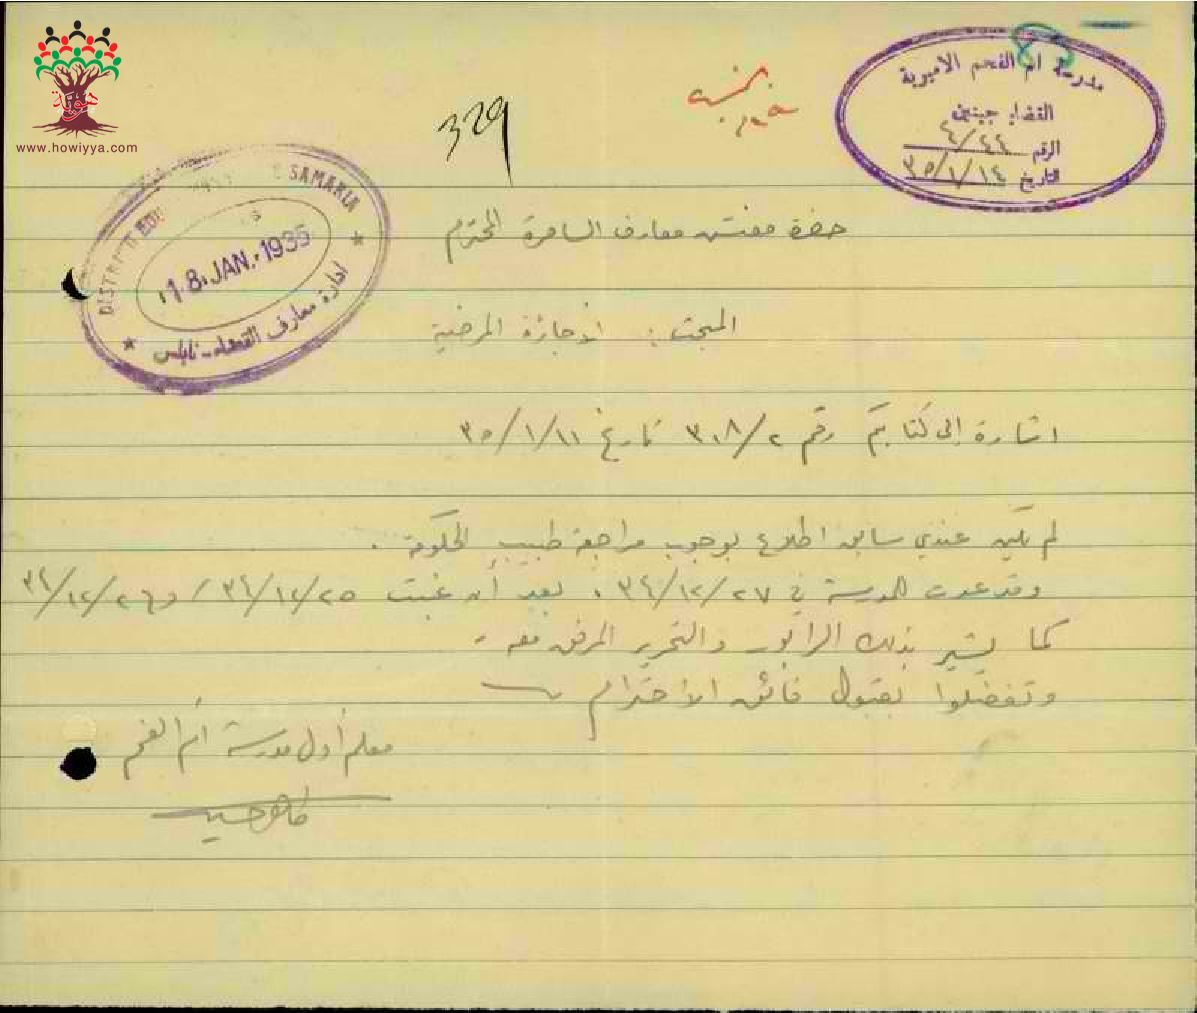 هوية
www.howiyya.com
329
مدرسة ام الفحم الاميرية
القضاء جينين
الرقم ٤/٤٤
التاريخ ٣٥/١/١٤
DISTRICT SAMARIA
18. JAN. 1935
ادارة معارف القضاء - نابلس
حضرة مفتش معارف السامرة المحترم
المبحث : الاجازة المرضية
اشارة الى كتابكم رقم ٣٠٨/٢ تاريخ ٣٥/١/١١
لم يكن عندي سابق اطلاع بوجوب مراجعة طبيب الحكومة .
وقد عدت للمدرسة في ٣٤/١٢/٢٧ ، بعد أن غبت ٣٤/١٢/٢٥ و ٣٤/١٢/٢٦
كما يشير بذلك الرابور والتحرير المرفق معه -
وتفضلوا بقبول فائق الاحترام
معلم أول مدرسة أم الفحم